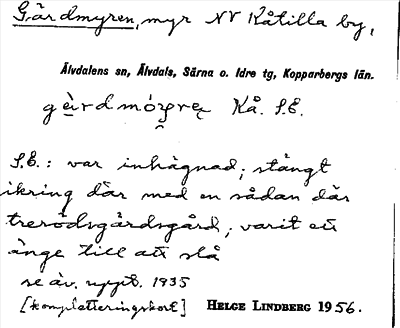 Gärdmyren, myr NV Kåtilla by,
Älvdalens sn, Älvdals, Särna o. Idre tg, Kopparbergs län.
Kå. S.E.
S.E.: var inhägnad; stängt
ikring där med en sådan där
trerödsgärdsgård; varit ett
änge till att slå
se äv. uppt. 1935
[kompletteringskort] HELGE LINDBERG 1956.